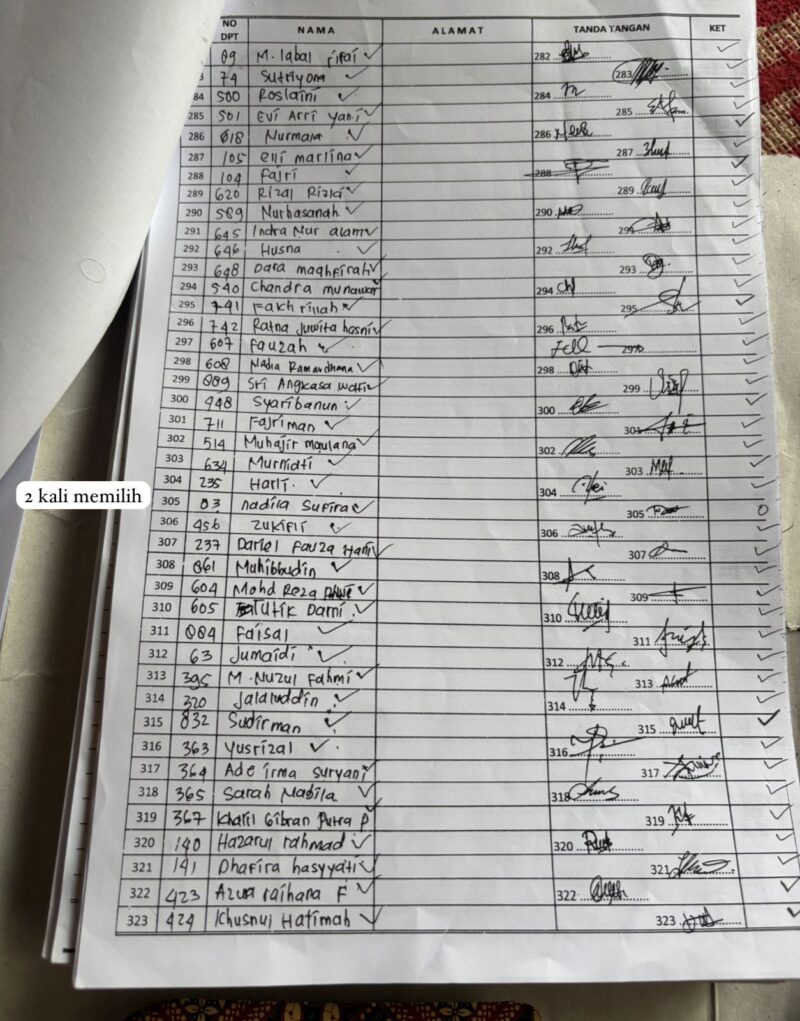 NO DPT NAMA ALAMAT TANDA TANGAN KET
09 M. Iqbal Fifai 282
74 Sutriyona 283
84 500 Roslaini 284
285 501 Evi Arri Yani 285
286 618 Nurmala 286
287 105 Elli marlina 287
288 104 Fajri 288
289 620 Rizal Rizki 289
290 589 Nurhasanah 290
291 645 Indra Nur alam 291
292 646 Husna 292
293 648 Dara maghfirah 293
294 540 Chandra munawar 294
295 741 Fakhrillah 295
296 742 Ratna Juwita hasni 296
297 607 Fauzah 297
298 608 Nadia Ramardhana 298
299 009 Sri Angkasa Watti 299
300 948 Syaribanun 300
301 711 Fajriman 301
302 514 Muhajir maulana 302
303 634 Murniati 303
304 235 Harli 304
2 kali memilih
305 03 nadila Sufira 305
306 456 Zukifli 306
307 237 Dariel Fauza Hani 307
308 061 Muhibbudin 308
309 604 Mohd Reza 309
310 605 Tutik Darni 310
311 004 Faisal 311
312 63 Jumaidi 312
313 395 M. Nuzul Fahmi 313
314 320 Jalaluddin 314
315 832 Sudirman 315
316 363 Yusrizal 316
317 364 Ade irma suryani 317
318 365 Sarah Nabila 318
319 367 Khalil Gibran Putra P 319
320 140 Hazarul rahmad 320
321 141 Dhafira hasyyati 321
322 423 Azwa raihana F 322
323 424 Khusnul Hatimah 323